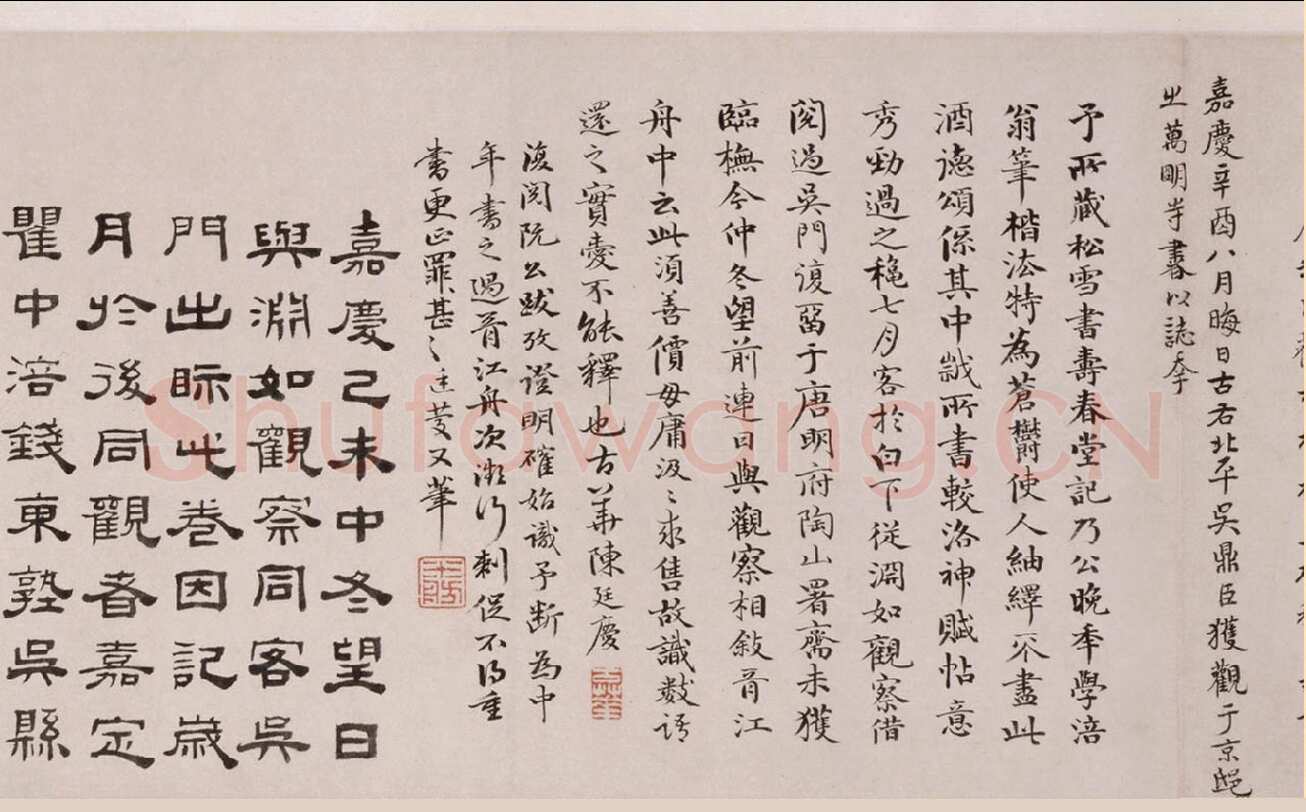 嘉慶辛酉八月晦日古右北平吳鼎臣獲觀于京邸
之萬明寺書以誌幸
予所藏松雪書壽春堂記乃公晚年學涪
翁筆楷法特為蒼欝使人紬繹不盡此
酒德頌係其中誠所書較洛神賦帖意
秀勁過之穐七月客於白下從淵如觀察借
閱過吳門復留于唐明府陶山署齋未獲
臨橅今仲冬望前連日與觀察相敘胥江
舟中云此須善價毋庸汲〻求售故識數語
還之實愛不能釋也古華陳廷慶
復閱阮公跋攷證明確始識予断為中
年書之過胥江舟次濒行刺促不得重
書更正罪甚〻廷慶又筆
嘉慶己未中冬望日
與淵如觀察同客吳
門出眎此卷因記歲
月於後同觀者嘉定
瞿中涪錢東塾吳縣
Shufawang.CN